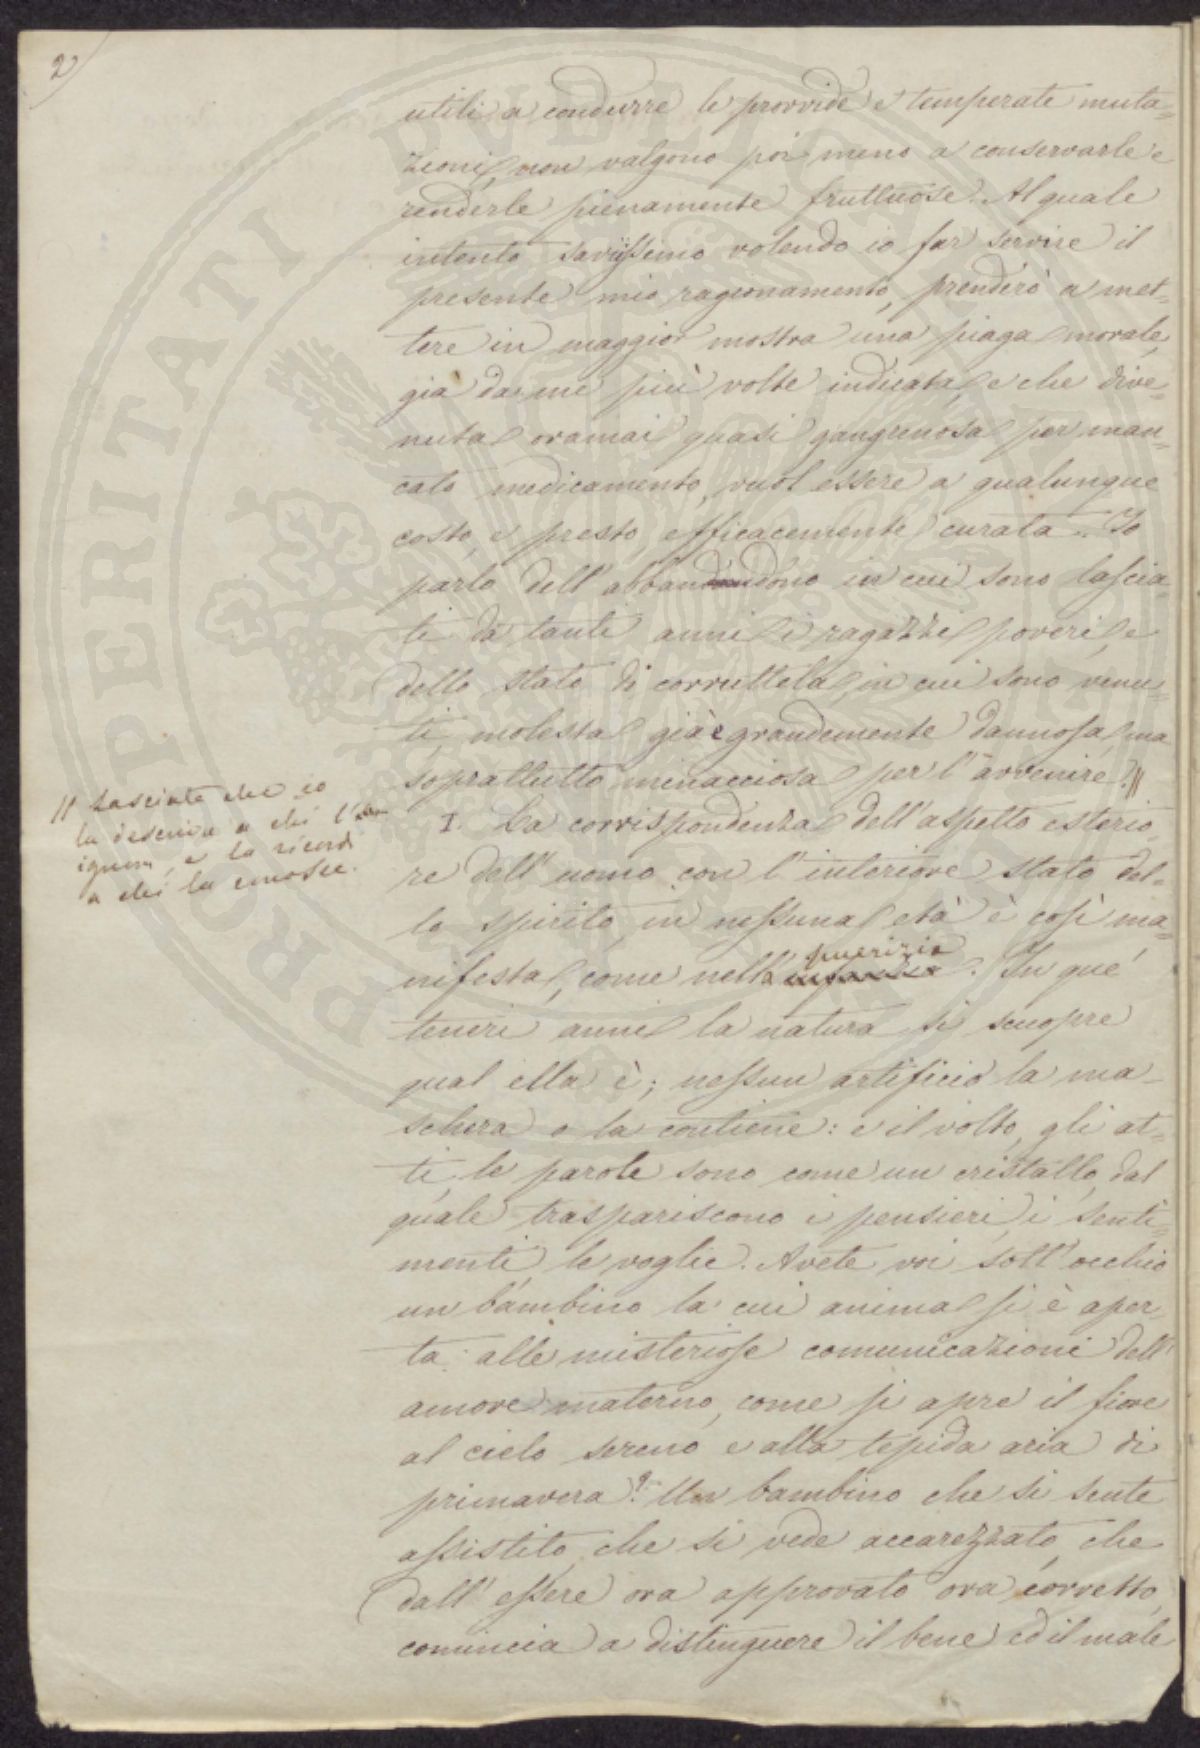 2
utili a condurre le provvide e temperate muta=
zioni, non valgono poi meno a conservarle e
renderle pienamente fruttuose. Al quale
intento savijssimo volendo io far servire il
presente mio ragionamento, prenderò a met=
tere in maggior mostra una piaga morale,
già da me più volte indicata, e che dive=
nuta oramai quasi gangrenosa per man=
cato medicamento, vuol essere a qualunque
costo, e presto, efficacemente curata. Io
parlo dell'abbandono in cui sono lascia=
ti da tanti anni i ragazzi poveri, e
dello stato di corruttela, in cui sono venu=
ti, molesta già e grandemente dannosa, ma
soprattutto minacciosa per l'avvenire. //
// Lasciate che io
la descriva a chi l'
ignora, e la ricordi
a chi la conosce.
I. La corrispondenza dell'aspetto esterio=
re dell'uomo con l'interiore stato del=
lo spirito, in nessuna età è così ma=
nifesta, come nella puerizia. In que'
teneri anni la natura si scuopre
qual ella è; nessun artificio la ma=
schera o la contiene: e il volto, gli at=
ti, le parole sono come un cristallo, dal
quale traspariscono i pensieri, i senti=
menti, le voglie. Avete voi sott'occhio
un bambino la cui anima si è aper=
ta alle misteriose comunicazioni dell'
amore materno, come si apre il fiore
al cielo sereno e alla tepida aria di
primavera? Un bambino che si sente
assistito, che si vede accarezzato, che
dall'essere ora approvato ora corretto,
comincia a distinguere il bene ed il male
PROSPERITATI PVBLICAE